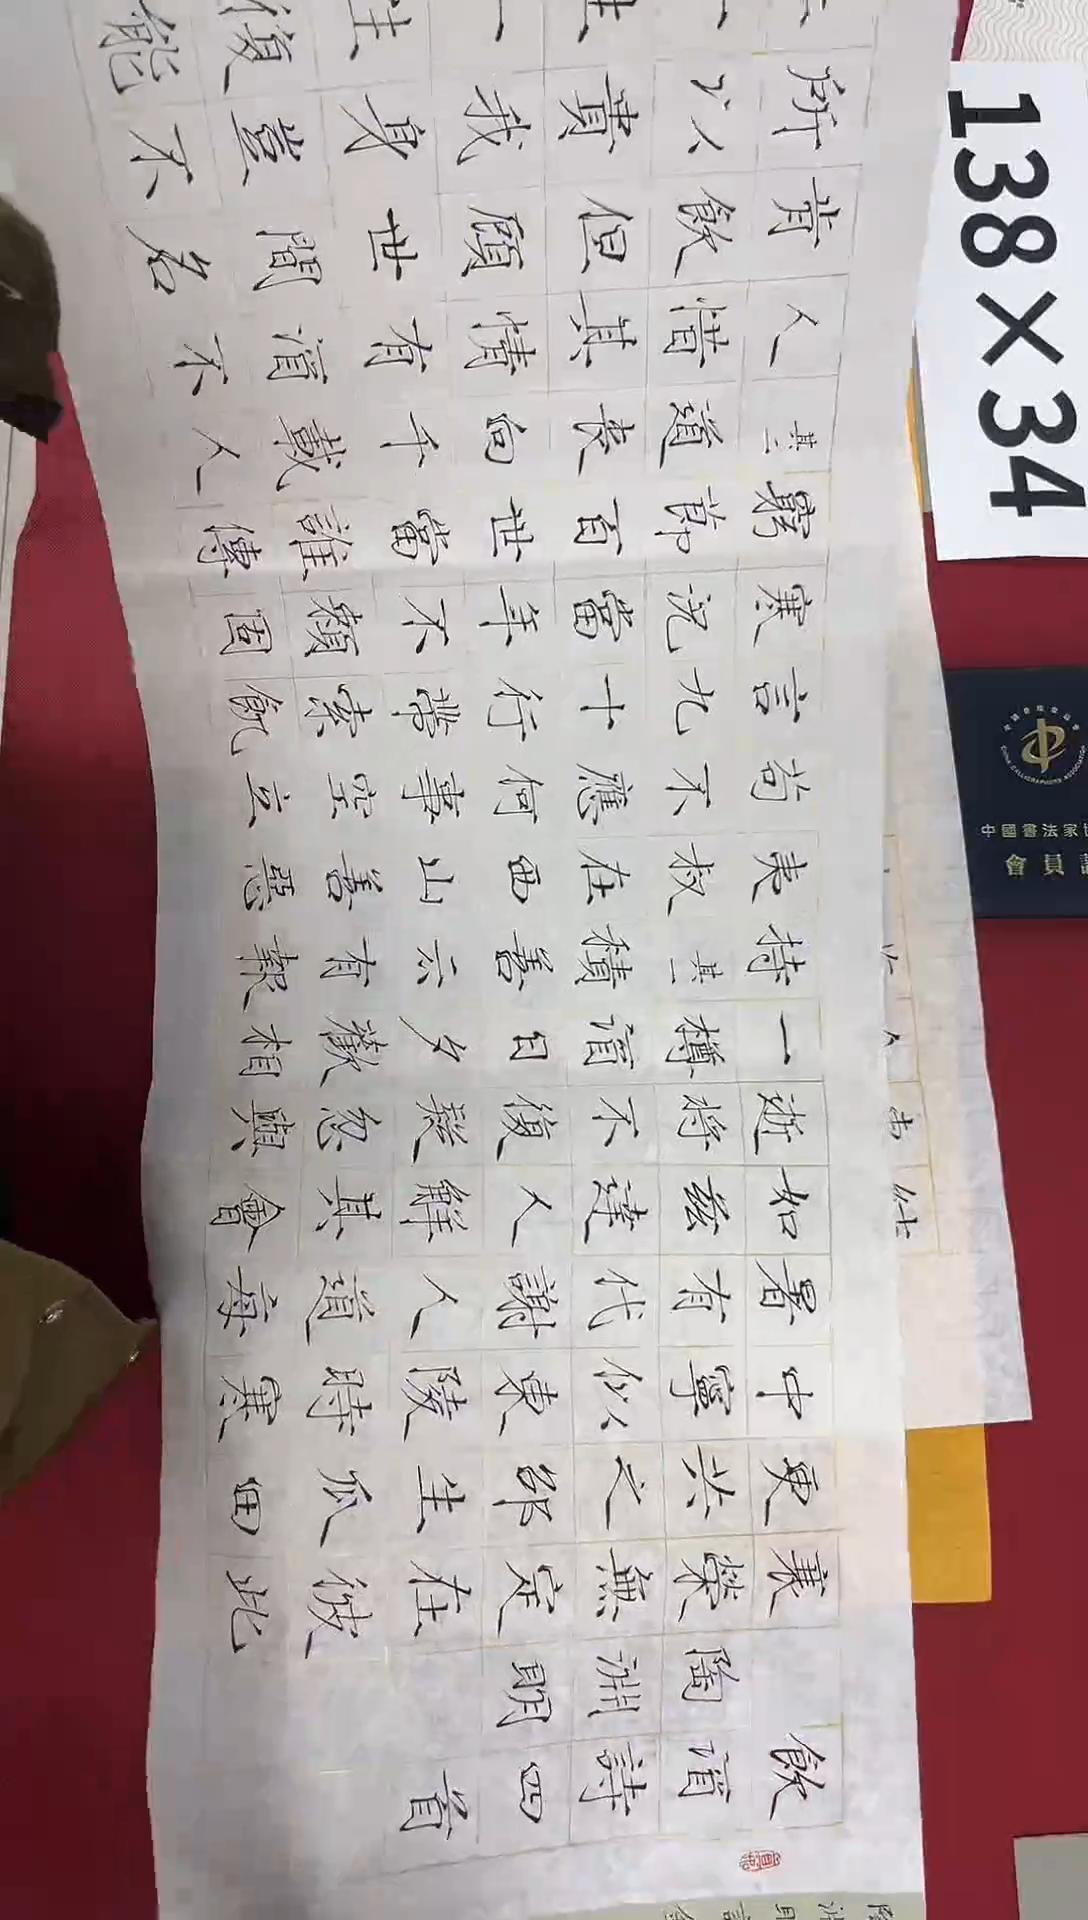 飲酒詩四首
陶淵明
衰榮無定在彼此
更共之邵生瓜田
中寧似東陵時寒
暑有代謝人道每
如茲達人解其會
逝將不復疑忽與
一樽酒日夕歡相
持其一積善云有報
夷叔在西山善惡
苟不應何事空立
言九十行帶索飢
寒況當年不賴固
窮節百世當誰傳
其二道喪向千載人
人惜其情有酒不
肯飲但顧世間名
所以貴我身豈不
一生一生復能
138×34
中國書法家
會員